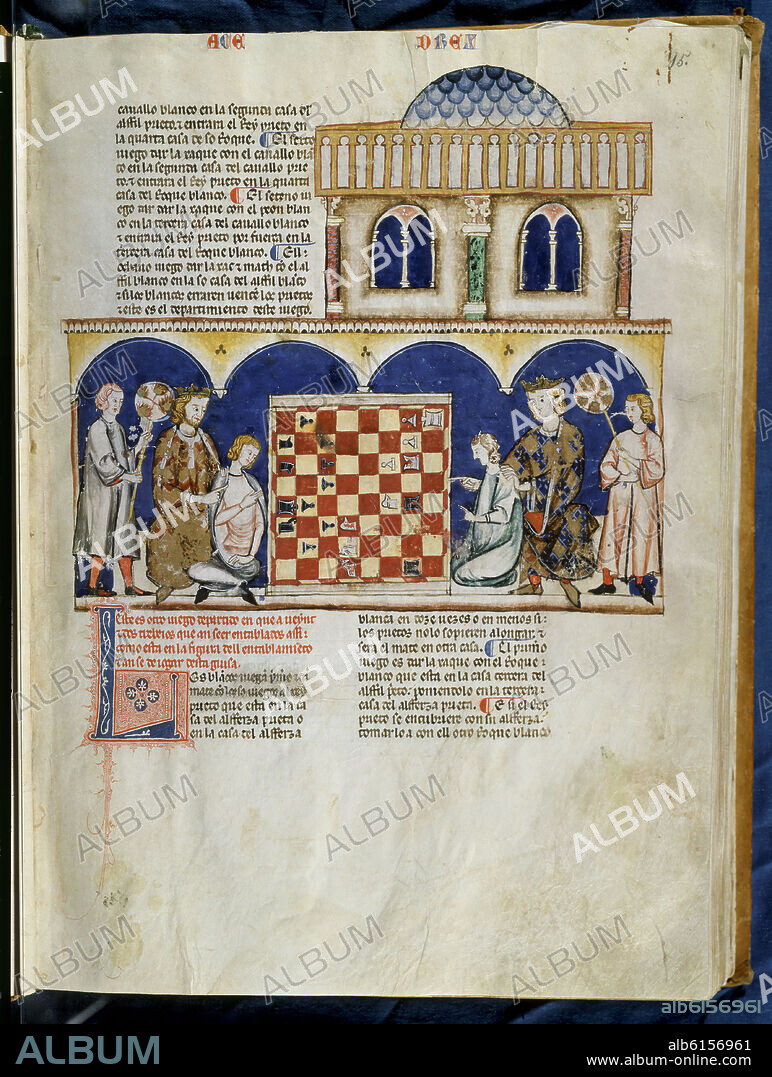 ACE DREX
45.
cauallo blanco en la segunda casa del
alffil prieto. & entrara el Rey prieto en
la quarta casa de so Roque. ¶ El sexto
iuego dar la xaque con el cauallo blan
co en la segunda casa del cauallo prie
to. & entrara el Rey prieto en la quarta
casa del Roque blanco. ¶ El seteno iu
ego dar la xaque con el peon blan
co en la tercera casa del cauallo blanco
& entrara el Rey prieto por fuerça en la
tercera casa del Roque blanco. ¶ Ell
ochauo iuego dar la xac & math con el al
ffil blanco en la so casa del alffil blanco
& si los blancos erraren uencen los prietos
& este es el departimiento deste iuego.
Este es otro iuego departido en que a ueynt
& dos trebeios que an seer entablados assi
como esta en la figura dell entablamiento
& an se de iogar desta guisa.
Los blancos iuegan primero &
mate con lo so iuego al Rey
prieto que esta en la ca
sa del alfferza prieta o
en la casa del alfferza
blanca en doze uezes o en menos si
los prietos nolo sopieren alongar. &
sera el mate en otra casa. ¶ El primero
iuego es dar la xaque con el Roque
blanco que esta en la casa tercera del
alffil prieto. poniendolo en la tercera
casa del alfferza prieta. ¶ E si el Rey
prieto se encubriere con su alfferza.
tomarlo a con ell otro Roque blanco
ALBUM
alb6156961
ALBUM
alb6156961
www.album-online.com